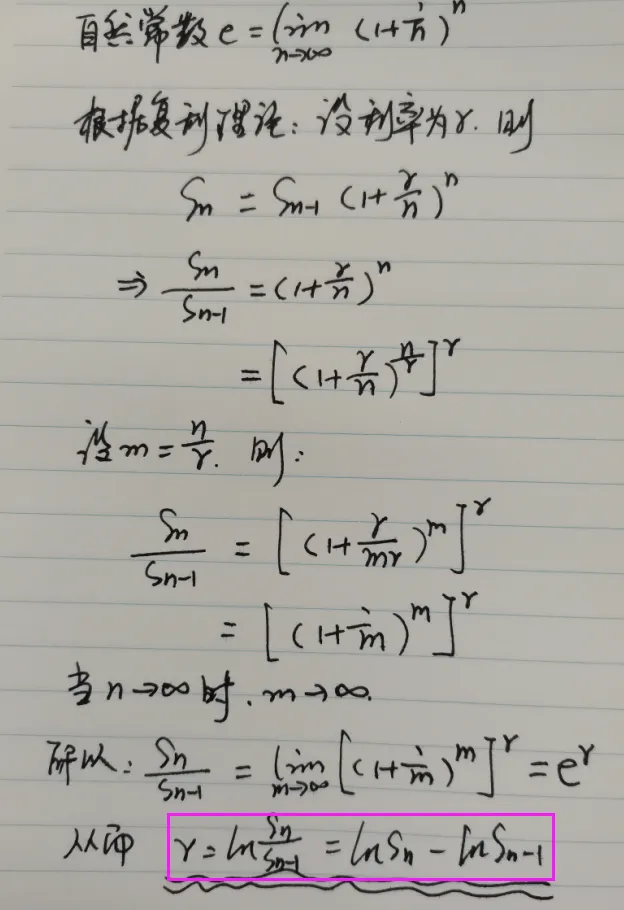 自然常数 e = lim_{n→∞} (1+1/n)^n
根据复利理论：设利率为r. 则
Sn = Sn-1 (1+r/n)^n
⇒ Sn/Sn-1 = (1+r/n)^n
= [(1+r/n)^{n/r}]^r
设 m = n/r. 则：
Sn/Sn-1 = [(1+r/mr)^m]^r
= [(1+1/m)^m]^r
当 n→∞ 时. m→∞.
所以：Sn/Sn-1 = lim_{m→∞} [(1+1/m)^m]^r = e^r
从而 r = ln Sn/Sn-1 = lnSn - lnSn-1